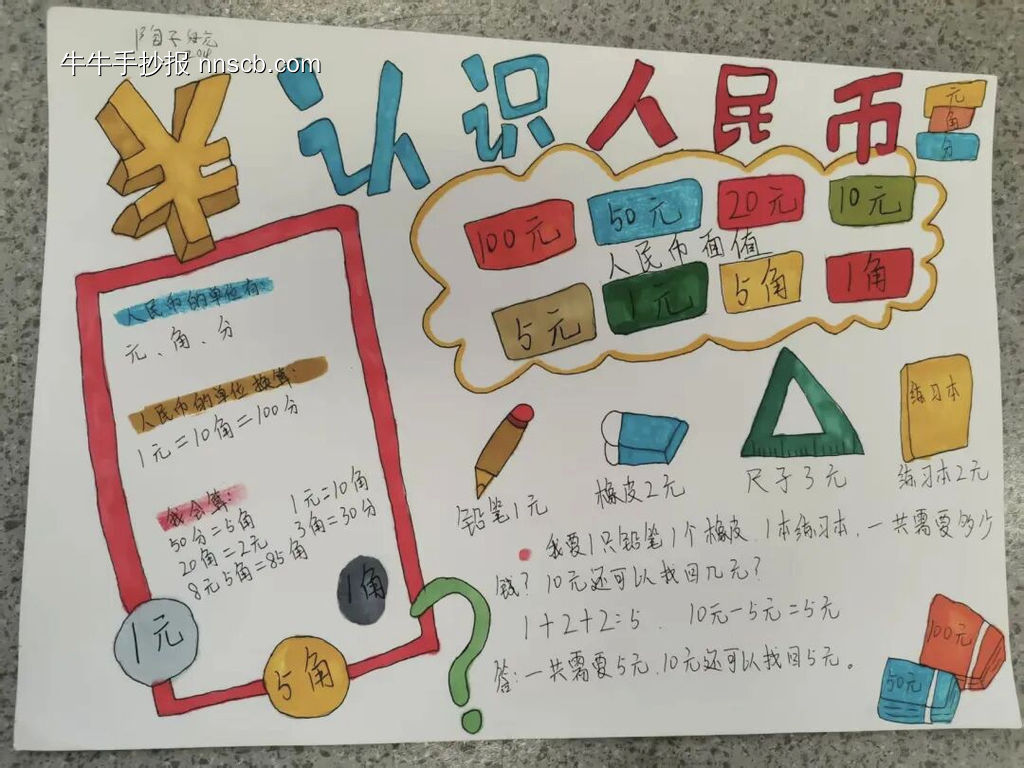 牛牛手抄报 nnscb.com
认识人民币
元
角
分
100元 50元 20元 10元
人民币面值
5元 1元 5角 1角
人民币的单位有:
元、角、分
人民币的单位换算:
1元=10角=100分
我会算:
1元=10角
50分=5角
3角=30分
20角=2元
8元5角=85角
1元
5角
1角
铅笔1元
橡皮2元
尺子3元
练习本
练习本2元
我要1只铅笔1个橡皮、1本练习本,一共需要多少
钱?10元还可以找回几元?
1+2+2=5、 10元-5元=5元
答:一共需要5元、10元还可以找回5元。
100元
50元